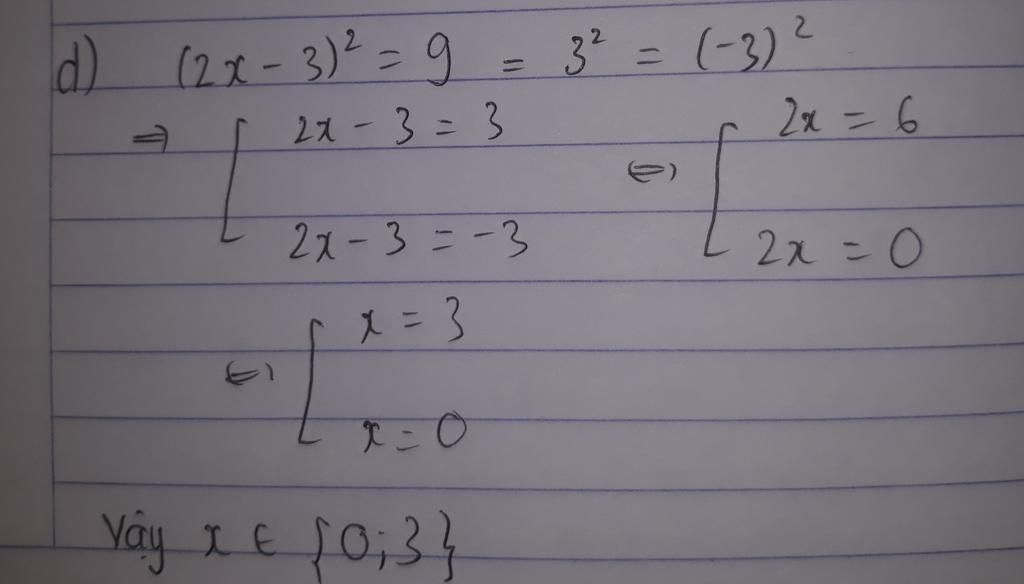 d) (2x - 3)² = 9 = 3² = (-3)²
⇒ [ 2x - 3 = 3 ⇔ [ 2x = 6
2x - 3 = -3 2x = 0
⇔ [ x = 3
x = 0
Vậy x ∈ {0; 3}